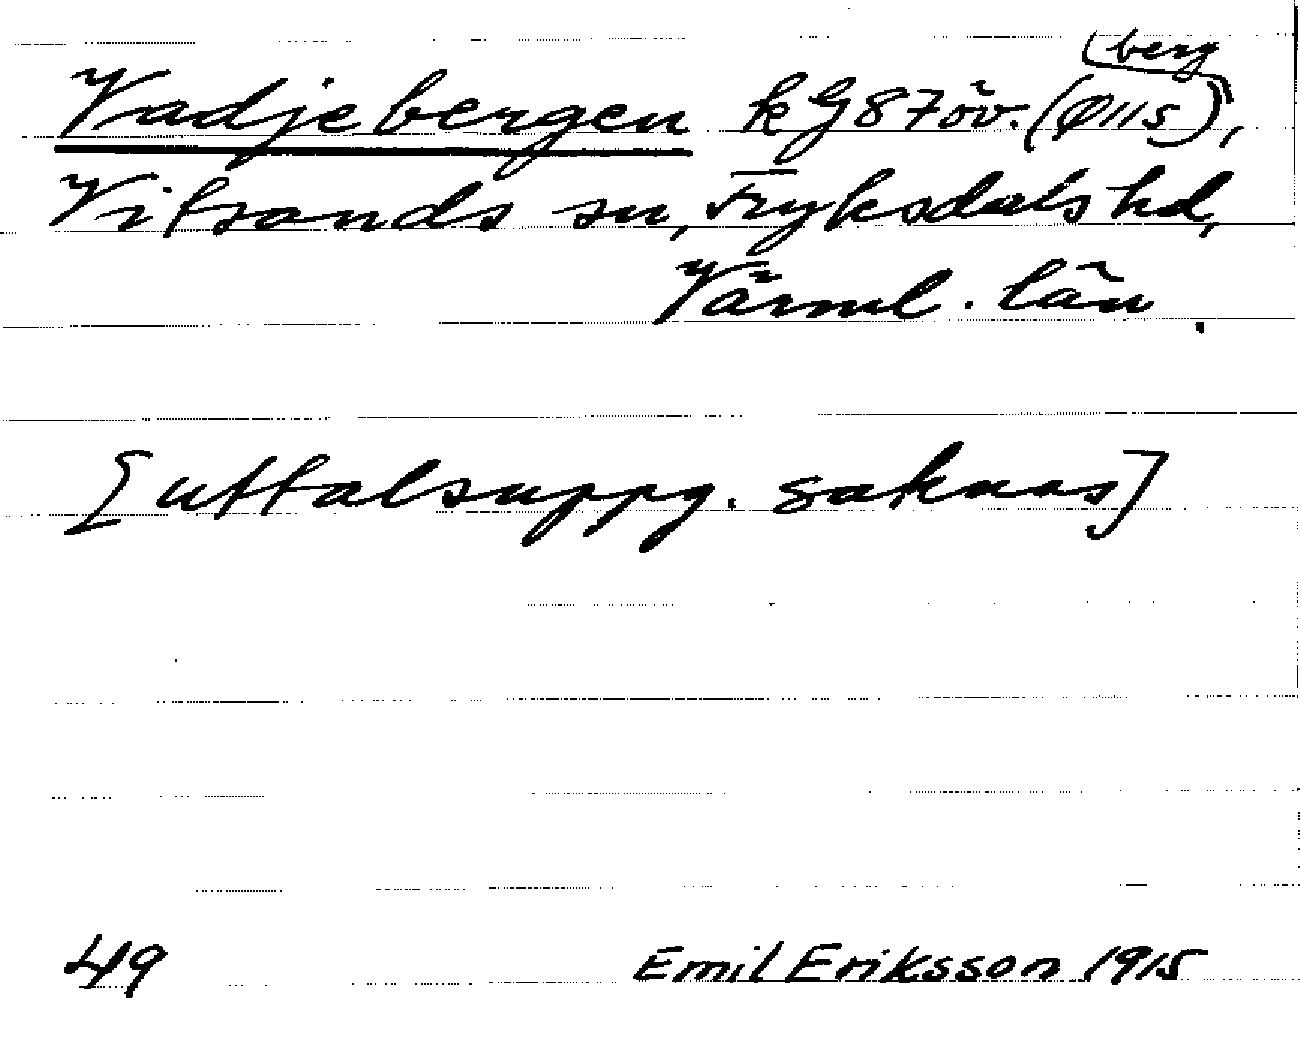 berg
Vadjebergen kG87öv. (Ø115),
Vitsands sn, Fryksdals hd,
Värml. län.
[uttalsuppg. saknas]
49 Emil Eriksson 1915